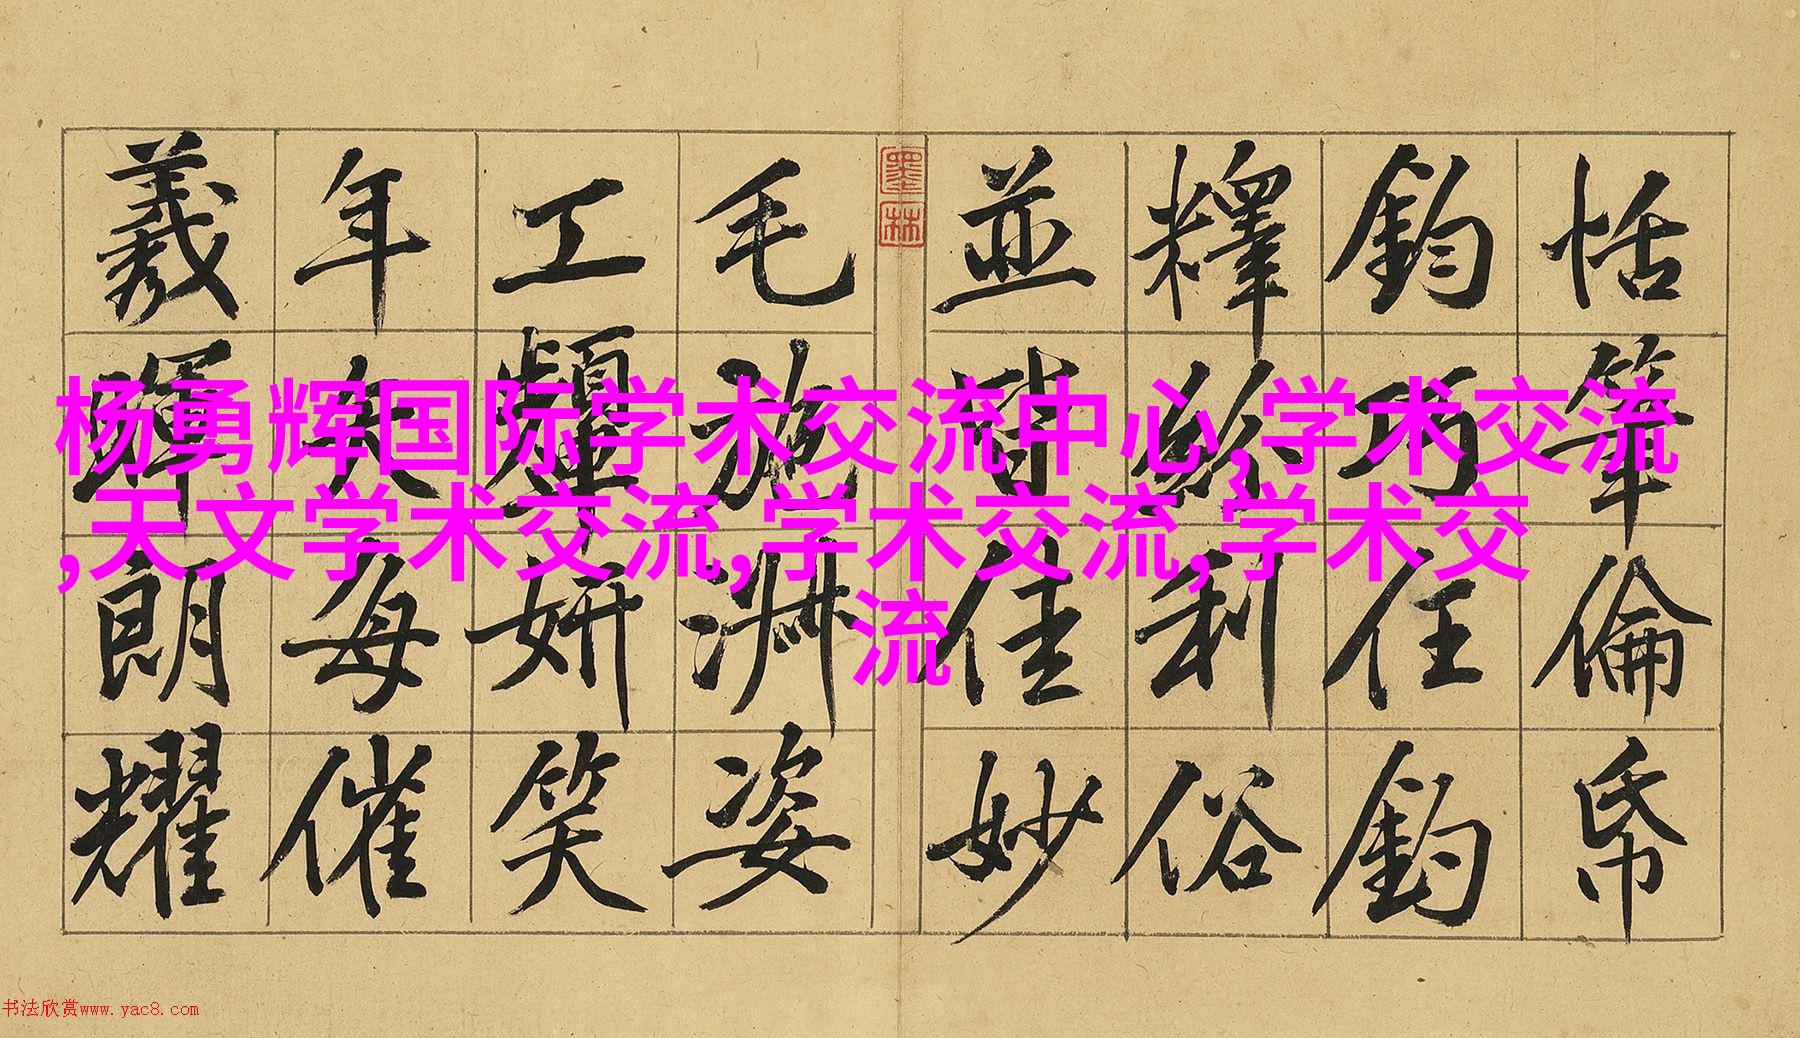 杨勇辉国际学术交流中心,学术交流
,天文学术交流,学术交流,学术交
流
恬筆倫帋
鈞巧任釣
釋紛利俗
並皆佳妙
墨林
毛施淑姿
工顰妍笑
年矢每催
羲暉朗耀
书法欣赏www.yac8.com